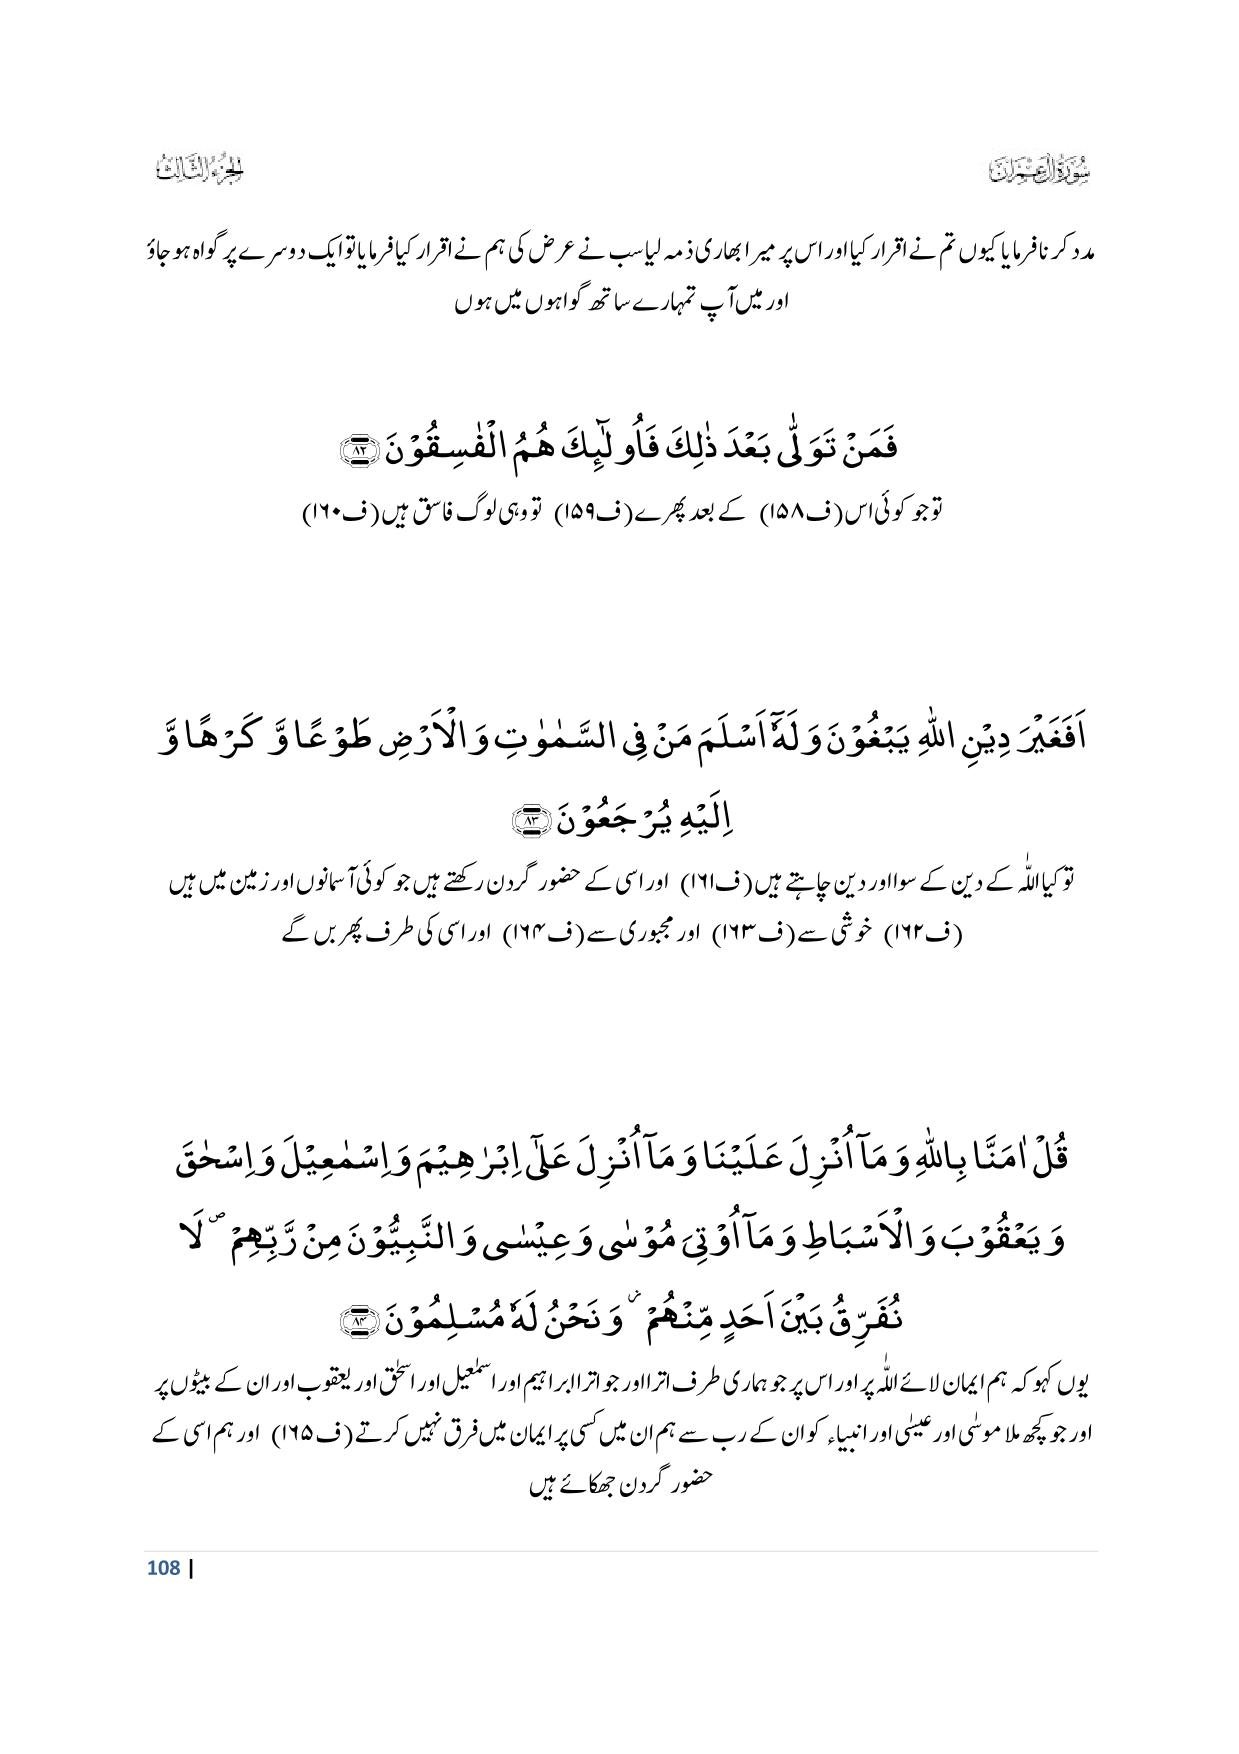 سُوۡرَةُ اٰلِ عِمۡرَان
الجزء الثالث
مدد کرنا فرمایا کیوں تم نے اقرار کیا اور اس پر میرا بھاری ذمہ لیا سب نے عرض کی ہم نے اقرار کیا فرمایا تو ایک دوسرے پر گواہ ہو جاؤ
اور میں آپ تمہارے ساتھ گواہوں میں ہوں
فَمَنۡ تَوَلّٰی بَعۡدَ ذٰلِكَ فَاُولٰٓئِكَ هُمُ الۡفٰسِقُوۡنَ ﴿۸۲﴾
تو جو کوئی اس (ف۱۵۸) کے بعد پھرے (ف۱۵۹) تو وہی لوگ فاسق ہیں (ف۱۶۰)
اَفَغَیۡرَ دِیۡنِ اللّٰهِ یَبۡغُوۡنَ وَ لَهٗۤ اَسۡلَمَ مَنۡ فِی السَّمٰوٰتِ وَ الۡاَرۡضِ طَوۡعًا وَّ كَرۡهًا وَّ
اِلَیۡهِ یُرۡجَعُوۡنَ ﴿۸۳﴾
تو کیا اللّٰہ کے دین کے سوا اور دین چاہتے ہیں (ف۱۶۱) اور اسی کے حضور گردن رکھتے ہیں جو کوئی آسمانوں اور زمین میں ہیں
(ف۱۶۲) خوشی سے (ف۱۶۳) اور مجبوری سے (ف۱۶۴) اور اسی کی طرف پھریں گے
قُلۡ اٰمَنَّا بِاللّٰهِ وَ مَاۤ اُنۡزِلَ عَلَیۡنَا وَ مَاۤ اُنۡزِلَ عَلٰۤی اِبۡرٰهِیۡمَ وَ اِسۡمٰعِیۡلَ وَ اِسۡحٰقَ
وَ یَعۡقُوۡبَ وَ الۡاَسۡبَاطِ وَ مَاۤ اُوۡتِیَ مُوۡسٰی وَ عِیۡسٰی وَ النَّبِیُّوۡنَ مِنۡ رَّبِّهِمۡ ۪ لَا
نُفَرِّقُ بَیۡنَ اَحَدٍ مِّنۡهُمۡ ۫ وَ نَحۡنُ لَهٗ مُسۡلِمُوۡنَ ﴿۸۴﴾
یوں کہو کہ ہم ایمان لائے اللّٰہ پر اور اس پر جو ہماری طرف اترا اور جو اترا ابراہیم اور اسمٰعیل اور اسحٰق اور یعقوب اور ان کے بیٹوں پر
اور جو کچھ ملا موسٰی اور عیسٰی اور انبیاء کو ان کے رب سے ہم ان میں کسی پر ایمان میں فرق نہیں کرتے (ف۱۶۵) اور ہم اسی کے
حضور گردن جھکائے ہیں
108 |